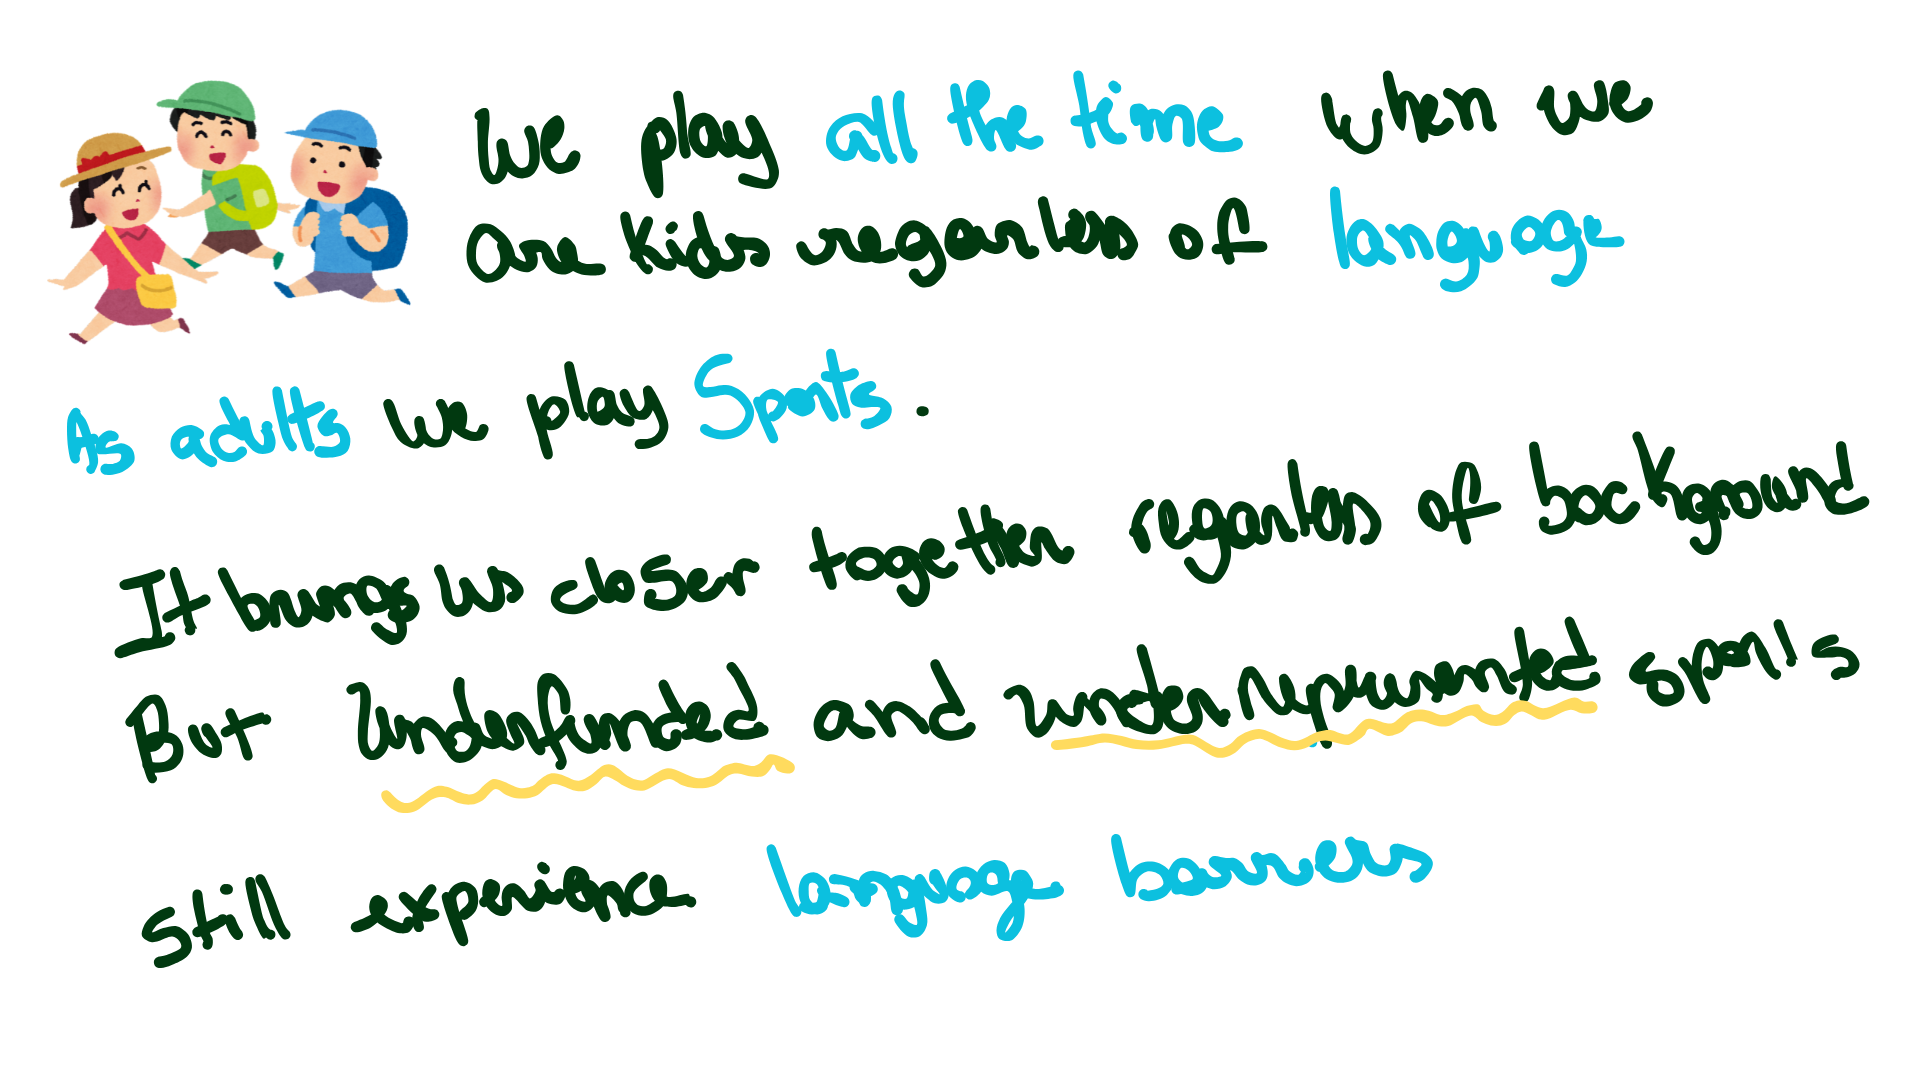 We play all the time when we
are kids regarless of language
As adults we play Sports.
It brings us closer together regarless of background
But Underfunded and underrepresented sports
still experience language barriers